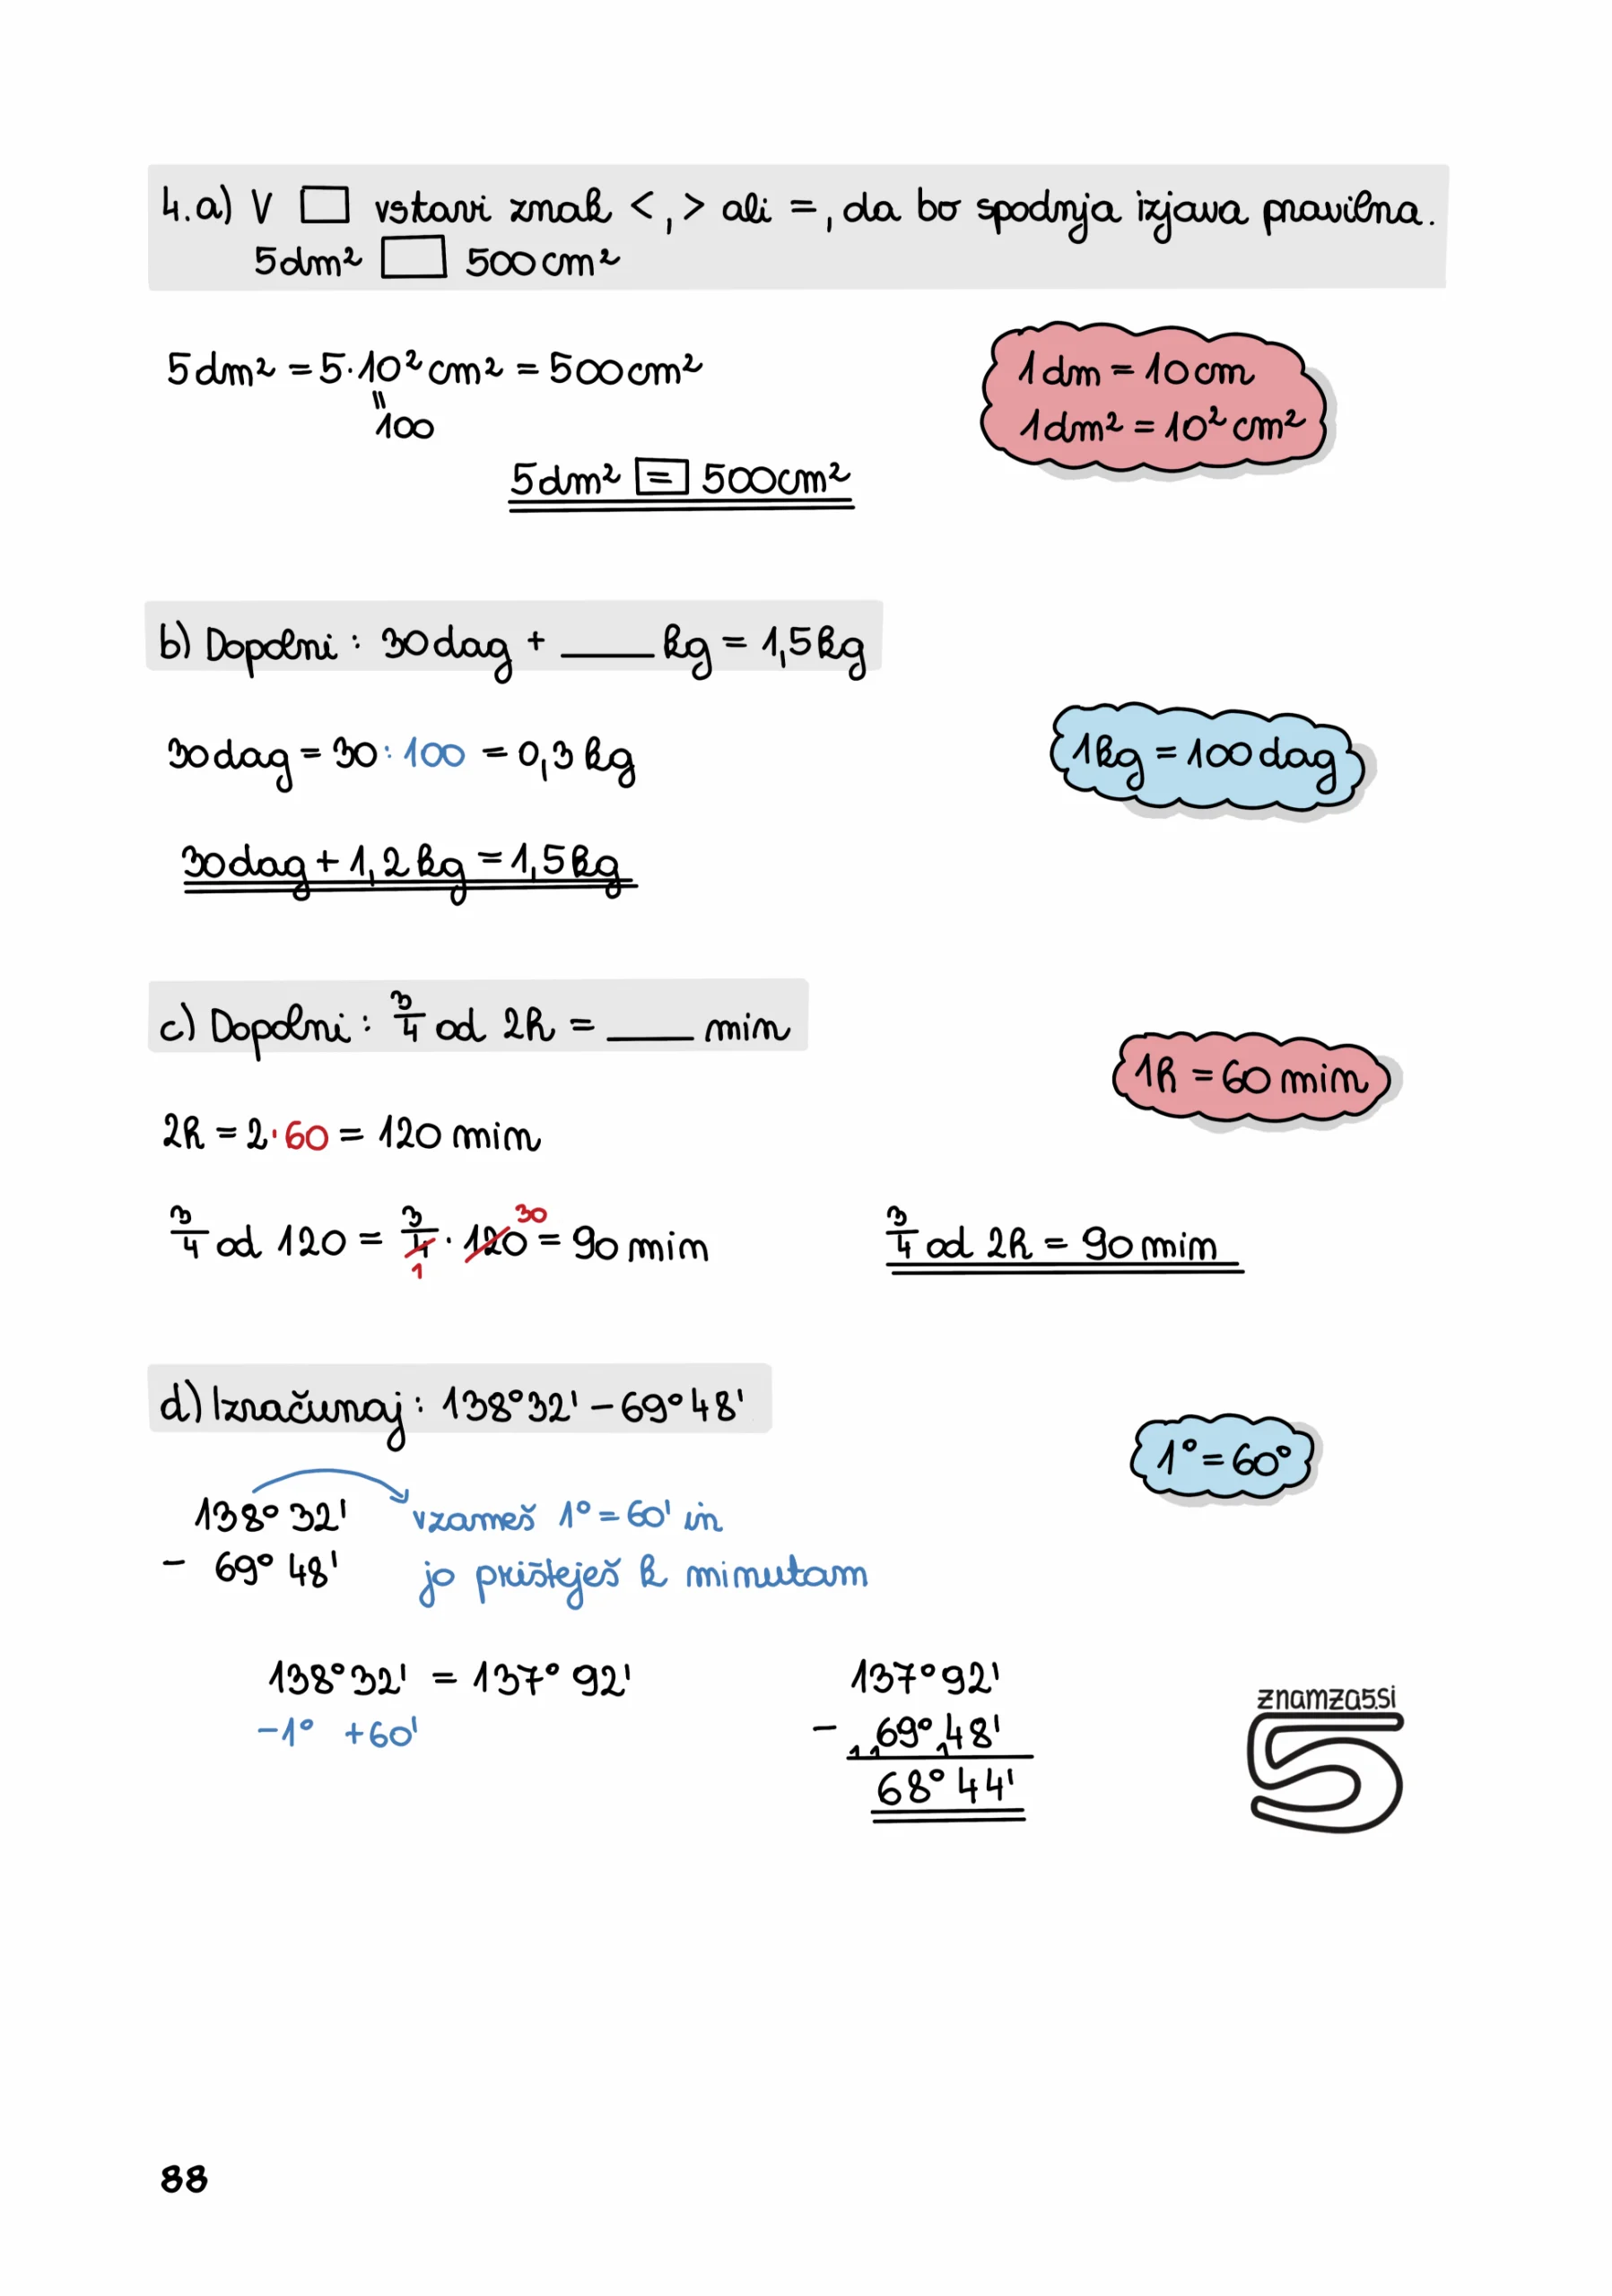 4. a) V □ vstavi znak <, > ali =, da bo spodnja izjava pravilna.
5 dm² □ 500 cm²
5 dm² = 5 · 10² cm² = 500 cm²
=
100
1 dm = 10 cm
1 dm² = 10² cm²
5 dm² = 500 cm²
b) Dopolni : 30 dag + ____ kg = 1,5 kg
30 dag = 30 : 100 = 0,3 kg
1 kg = 100 dag
30 dag + 1,2 kg = 1,5 kg
c) Dopolni : 3/4 od 2h = ____ min
1h = 60 min
2h = 2 · 60 = 120 min
3/4 od 120 = 3/4 · 120 = 90 min
30
1
3/4 od 2h = 90 min
d) Izračunaj : 138° 32' – 69° 48'
1° = 60°
138° 32' vzameš 1° = 60' in
– 69° 48' jo prišteješ k minutam
138° 32' = 137° 92'
–1° +60'
137° 92'
– 69° 48'
1 1 1
68° 44'
znamza5.si
5
88